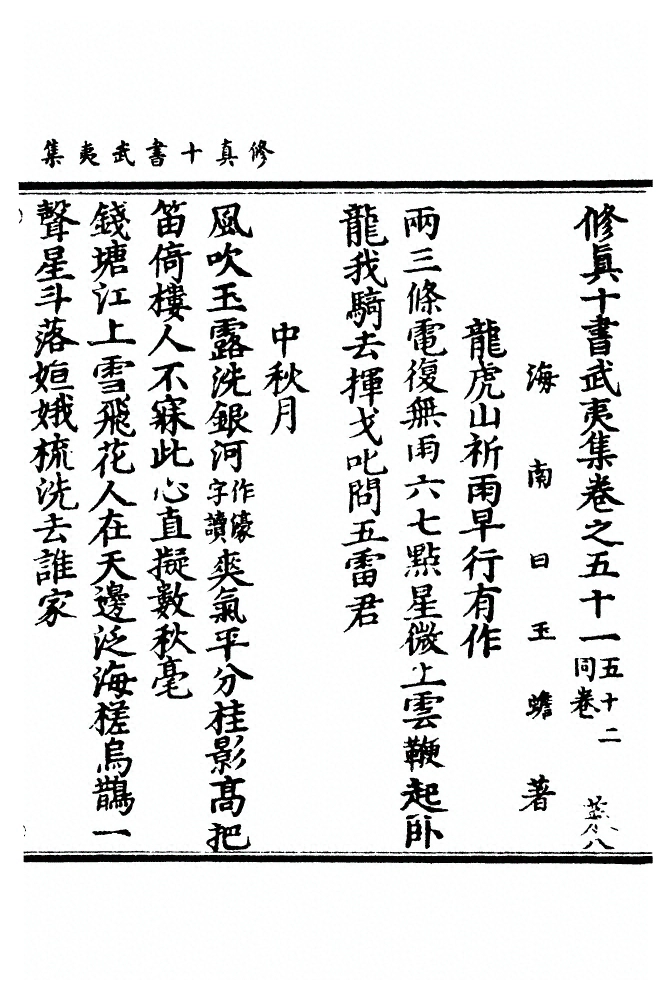 修真十書武夷集
修眞十書武夷集卷之五十一五十二同卷
海南白玉蟾著
龍虎山祈雨早行有作
兩三條電復無雨六七點星微上雲鞭起卧
龍我騎去揮戈叱問五雷君
中秋月
風吹玉露洗銀河作濠字讀爽氣平分桂影高把
笛倚樓人不寐此心直擬數秋毫
錢塘江上雪飛花人在天邊泛海槎烏鵲一
聲星斗落姮娥梳洗去誰家